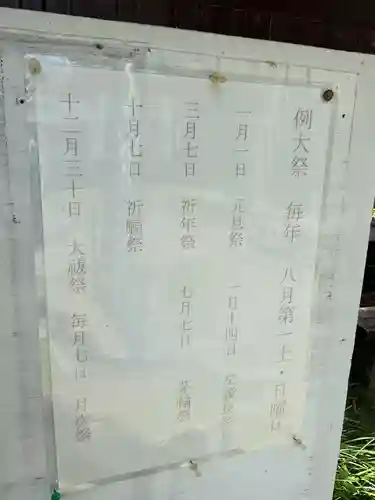 例大祭 毎年 八月第一土・日曜日
一月一日 元旦祭 一月十四日
三月七日 祈年祭 七月七日
十月七日 祈願祭
十二月三十日 大祓祭 毎月七日 月次祭